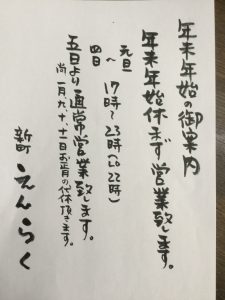 年末年始の御案内
年末年始休まず営業致します。
元旦
～
四日
17時～23時(L.O.22時)
五日より通常営業致します。
尚一月九、十、十一日お正月の代休頂きます。
新町 えんらく